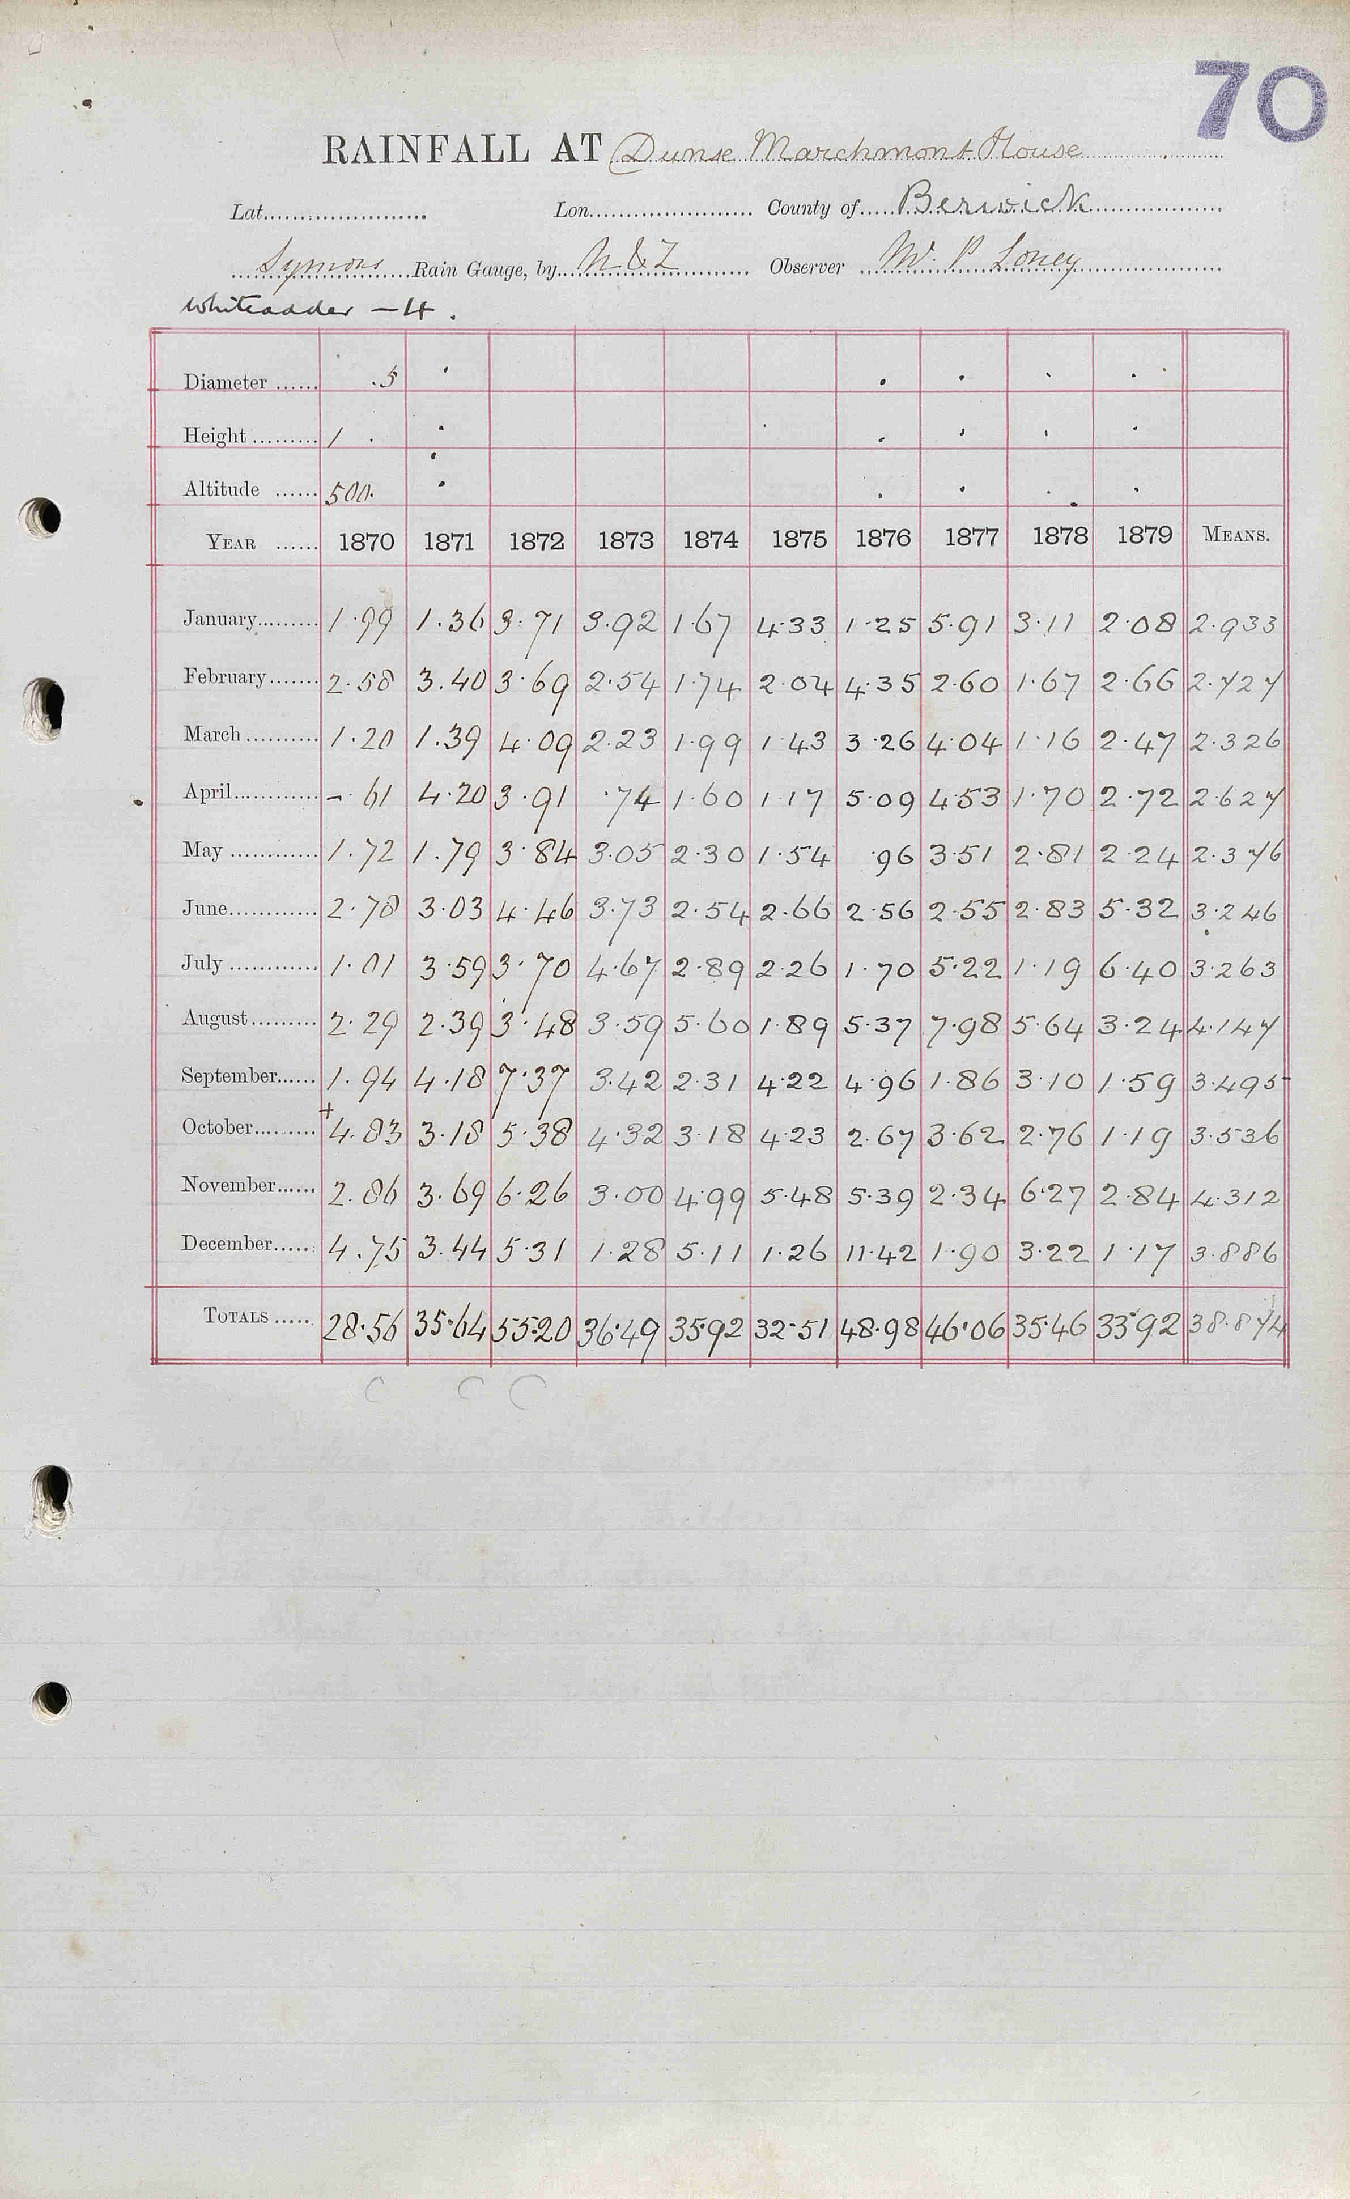 70
RAINFALL AT Dunse Marchmont House
Lat. Lon. County of Berwick
Symons Rain Gauge, by N & Z Observer Mr. P Loney
Whiteadder - 4.
Diameter 5
Height 1
Altitude 500.
YEAR 1870 1871 1872 1873 1874 1875 1876 1877 1878 1879 MEANS.
January 1.99 1.36 3.71 3.92 1.67 4.33 1.25 5.91 3.11 2.08 2.933
February 2.58 3.40 3.69 2.54 1.74 2.04 4.35 2.60 1.67 2.66 2.727
March 1.20 1.39 4.09 2.23 1.99 1.43 3.26 4.04 1.16 2.47 2.326
April - 61 4.20 3.91 .74 1.60 1.17 5.09 4.53 1.70 2.72 2.627
May 1.72 1.79 3.84 3.05 2.30 1.54 .96 3.51 2.81 2.24 2.376
June 2.78 3.03 4.46 3.73 2.54 2.66 2.56 2.55 2.83 5.32 3.246
July 1.01 3.59 3.70 4.67 2.89 2.26 1.70 5.22 1.19 6.40 3.263
August 2.29 2.39 3.48 3.59 5.60 1.89 5.37 7.98 5.64 3.24 4.147
September 1.94 4.18 7.37 3.42 2.31 4.22 4.96 1.86 3.10 1.59 3.495
October +4.83 3.18 5.38 4.32 3.18 4.23 2.67 3.62 2.76 1.19 3.536
November 2.86 3.69 6.26 3.00 4.99 5.48 5.39 2.34 6.27 2.84 4.312
December 4.75 3.44 5.31 1.28 5.11 1.26 11.42 1.90 3.22 1.17 3.886
TOTALS 28.56 35.64 55.20 36.49 35.92 32.51 48.98 46.06 35.46 33.92 38.874